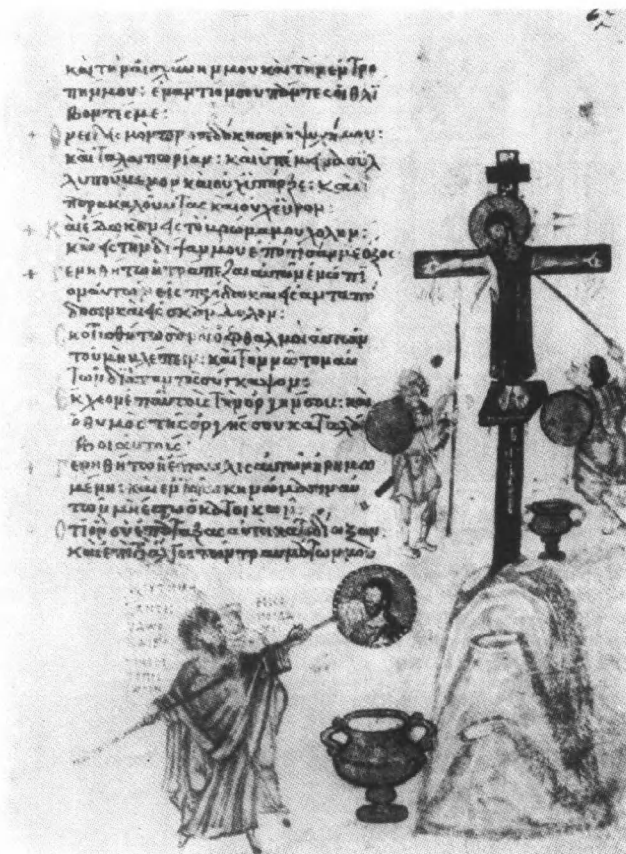 καὶ τὴν αἰσχύνην μου καὶ τὴν ἐντρο
πήν μου: ἐναντίον σου πάντες οἱ θλί
βοντές με:
+ Ὀνειδισμὸν προσεδόκησεν ἡ ψυχή μου:
καὶ ταλαιπωρίαν: καὶ ὑπέμεινα συλ
λυπούμενον καὶ οὐχ ὑπῆρξε: καὶ
παρακαλοῦντας καὶ οὐχ εὗρον:
+ Καὶ ἔδωκαν εἰς τὸ βρῶμα μου χολήν:
καὶ εἰς τὴν δίψαν μου ἐπότισάν με ὄξος
+ Γενηθήτω ἡ τράπεζα αὐτῶν ἐνώπι
ον αὐτῶν εἰς παγίδα καὶ εἰς ἀνταπό
δοσιν καὶ εἰς σκάνδαλον:
Σκοτισθήτωσαν οἱ ὀφθαλμοὶ αὐτῶν
τοῦ μὴ βλέπειν: καὶ τὸν νῶτον αὐ
τῶν διὰ παντὸς σύγκαμψον:
Ἔκχεον ἐπ αὐτοὺς τὴν ὀργήν σου: καὶ
ὁ θυμὸς τῆς ὀργῆς σου καταλά
βοι αὐτούς:
+ Γενηθήτω ἡ ἔπαυλις αὐτῶν ἠρημω
μένη: καὶ ἐν τοῖς σκηνώμασιν αὐ
τῶν μὴ ἔστω ὁ κατοικῶν:
Ὅτι ὃν σὺ ἐπάταξας αὐτοὶ κατεδίωξαν:
καὶ ἐπὶ τὸ ἄλγος τῶν τραυμάτων μου